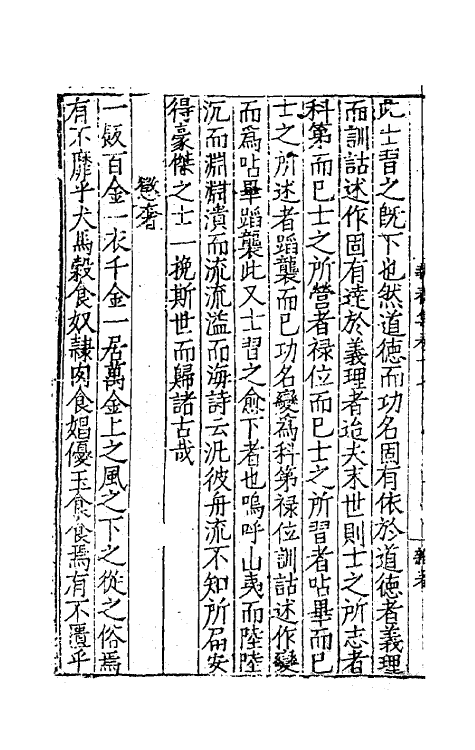 此士習之旣下也然道德而功名固有依於道德者義理
而訓詁述作固有逹於義理者迨夫末世則士之所志者
科第而已士之所營者祿位而已士之所習者呫畢而已
士之所述者蹈襲而已功名變爲科第祿位訓詁述作變
而爲呫畢蹈襲此又士習之愈下者也嗚呼山夷而陸陸
沉而淵淵潰而流流濫而海詩云汎彼舟流不知所屆安
得豪傑之士一挽斯世而歸諸古哉
懲奢
一飯百金一衣千金一居萬金上之風之下之從之俗焉
有不靡乎犬馬穀食奴隷肉食娼優玉食食焉有不匱乎